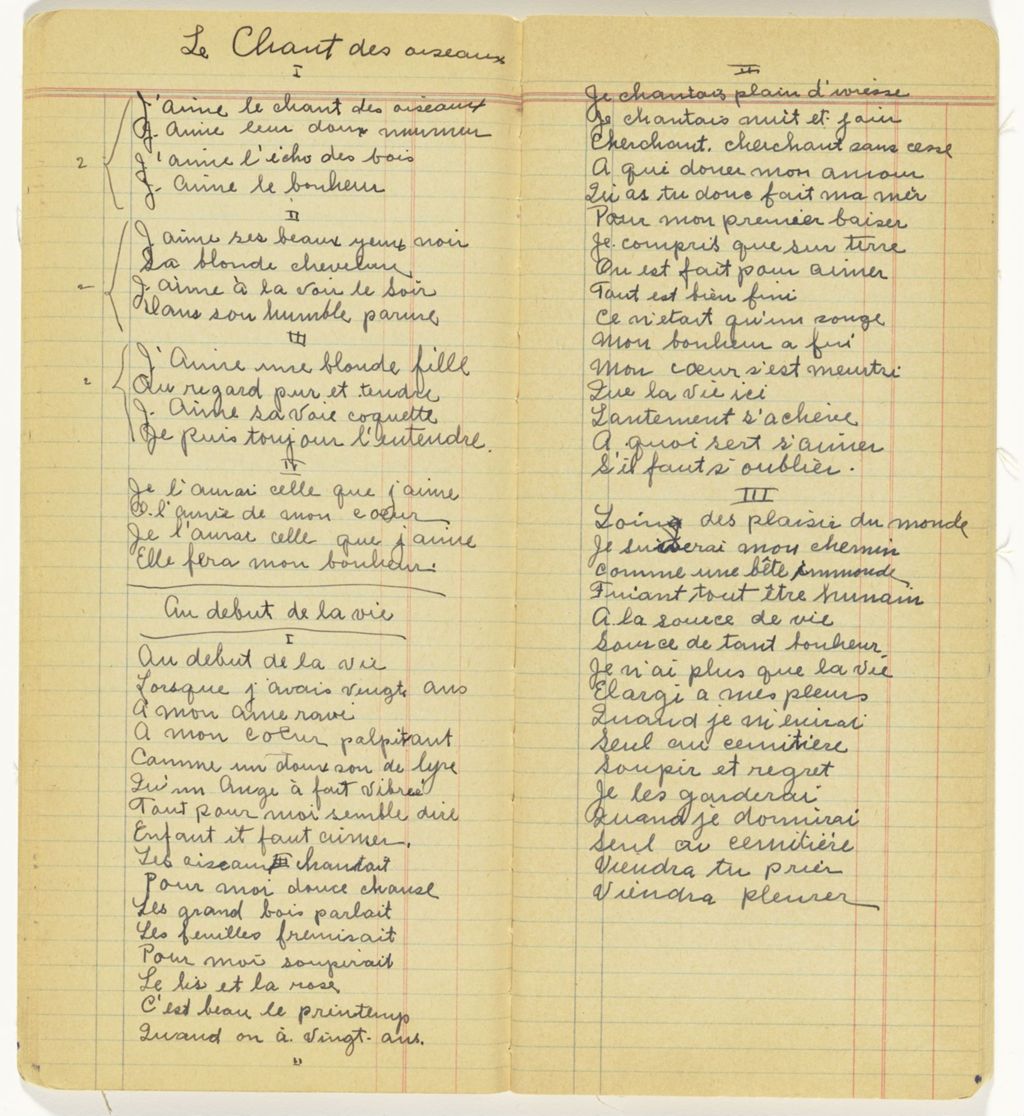 Le Chant des oiseaux
I
J'aime le chant des oiseaux
J. Aime leur doux murmur
2
J'aime l'écho des bois
J. aime le bonheur
II
J aime ses beaux yeux noir
Sa blonde chevelur
J. aime à la voir le soir
Dans son humble parure
III
J'Aime une blonde fille
2
Au regard pur et tendre
J. Aime sa voie coquette
Je puis toujour l'entendre.
IV
Je l'aurai celle que j'aime
O. l'amie de mon coeur
Je l'aurai celle que j'aime
Elle fera mon bonheur.
Au debut de la vie
I
Au debut de la vie
Lorsque j'avais vingt ans
A mon ame ravi
A mon coeur palpitant
Comme un doux son de lyre
Qu'un Ange à fait vibreé
Tout pour moi semble dire
Enfant it faut aimer.
Les oiseaux chantait
Pour moi douce chause
Les grand bois parlait
Les feuilles fremisait
Pour moi soupirait
Le lis et la rose
C'est beau le printemp
Quand on à vingt-ans.
"
II
Je chantais plain d'ivresse
Je chantais nuit et jour
Cherchant, cherchant sans cesse
A qui doner mon amour
Qu'as tu donc fait ma mèr
Pour mon premier baiser
Je compris que sur terre
On est fait pour aimer
Tout est bien fini
Ce n'etait qu'un songe
Mon bonheur a fui
Mon cœur s'est meurtri
Que la vie ici
Lantement s'achève
A quoi sert s'aimer
S'il faut s'oublièr.
III
Loing des plaisir du monde
Je suiverai mon chemin
Comme une bête immonde
Fuiant tout être humain
A la source de vie
Source de tant bonheur
Je n'ai plus que la vie
Elargi a mes pleurs
Quand je m'enirai
Seul au cemitière
Soupir et regret
Je les garderai
Quand je dormirai
Seul au cemitière
Viendra tu prièr
Viendra pleurer